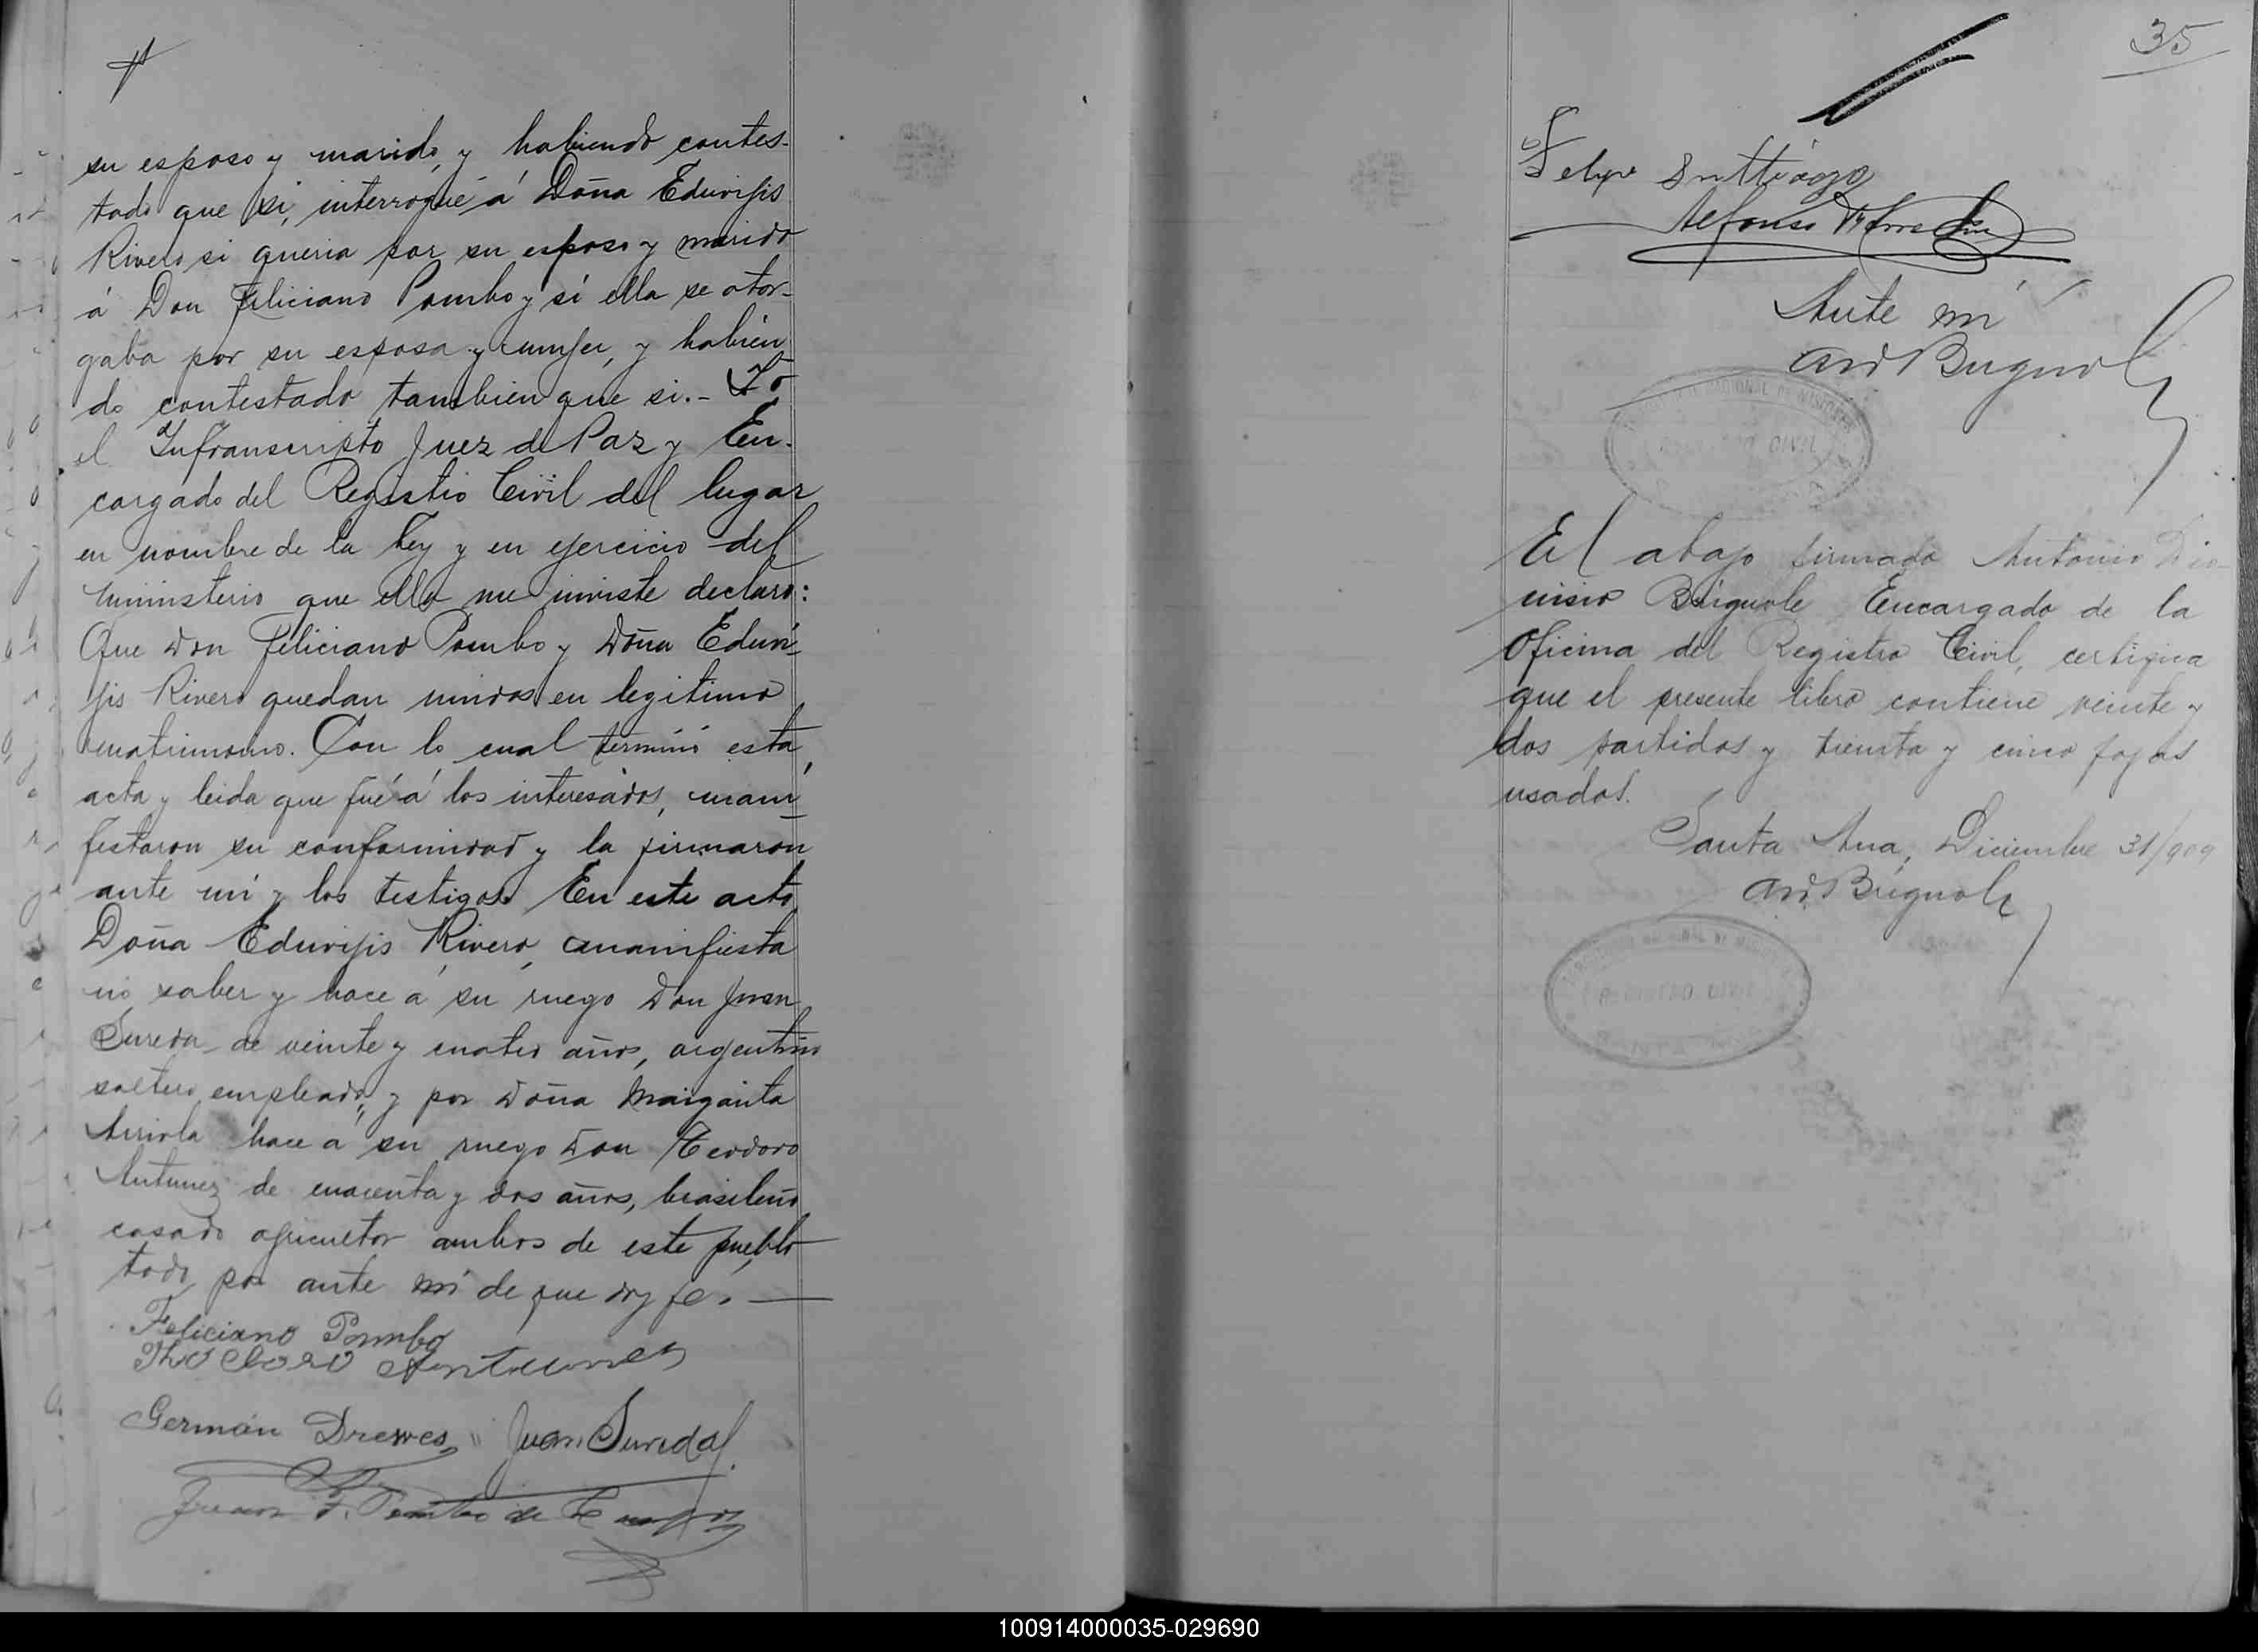 su esposo y marido, y habiendo contes-
tado que si, interrogué á Doña Eduvijis
Rivero si queria por su esposo y marido
á Don Feliciano Pombo y si ella se otor-
gaba por su esposa y mujer, y habien
do contestado tambien que si.- Yo
el Infranscripto Juez de Paz y En-
cargado del Registro Civil del lugar
en nombre de la Ley y en ejercicio del
ministerio que ella me inviste declaro:
Que Don Feliciano Pombo y Doña Eduvi-
jis Rivero quedan unidos en legitimo
matrimonio. Con lo cual terminó esta
acta y leida que fué á los interesados, mani-
festaron su conformidad y la firmaron
ante mi y los testigos. En este acto
Doña Eduvijis Rivero, manifiesta
no saber y hace á su ruego Don Juan
Sureda de veinte y cuatro años, argentino
soltero, empleado, y por Doña Margarita
Arriola hace á su ruego Don Teodoro
Antunez de cuarenta y dos años, brasileño
casado agricultor ambos de este pueblo
todo por ante mi de que doy fé.
Feliciano Pombo
Antunes
Germán Drewes Juan Sureda
Juan F. de Campos
35
Felipe
Alfonso
Ante mi
AD Brignole
REGISTRO CIVIL
El abajo firmado Antonio Dio-
nisio Brignole Encargado de la
Oficina del Registro Civil, certifica
que el presente libro contiene veinte y
dos partidas y treinta y cinco fojas
usadas.
Santa Ana, Diciembre 31/909
AD Brignole
REGISTRO CIVIL
SANTA ANA
100914000035-029690